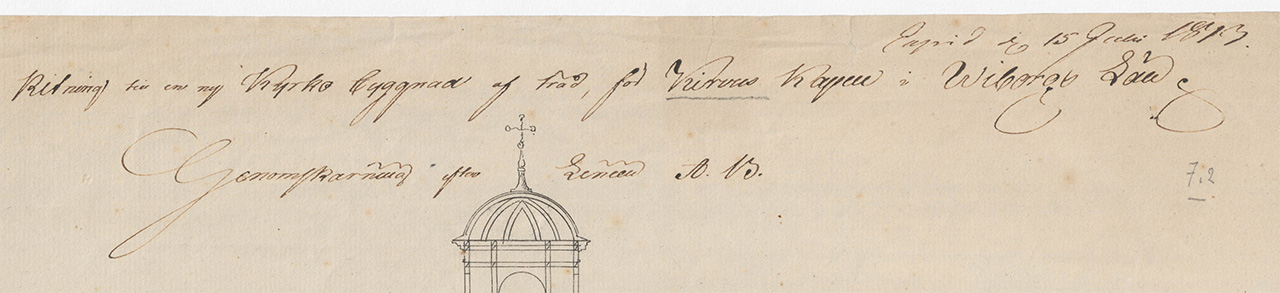 Expid d 15 Julii 1813.
Ritning til en ny Kyrko byggnad af träd, för Kivenus Kapell i Wiborgs Län
Genomskärning efter Linien A. B.
7.2